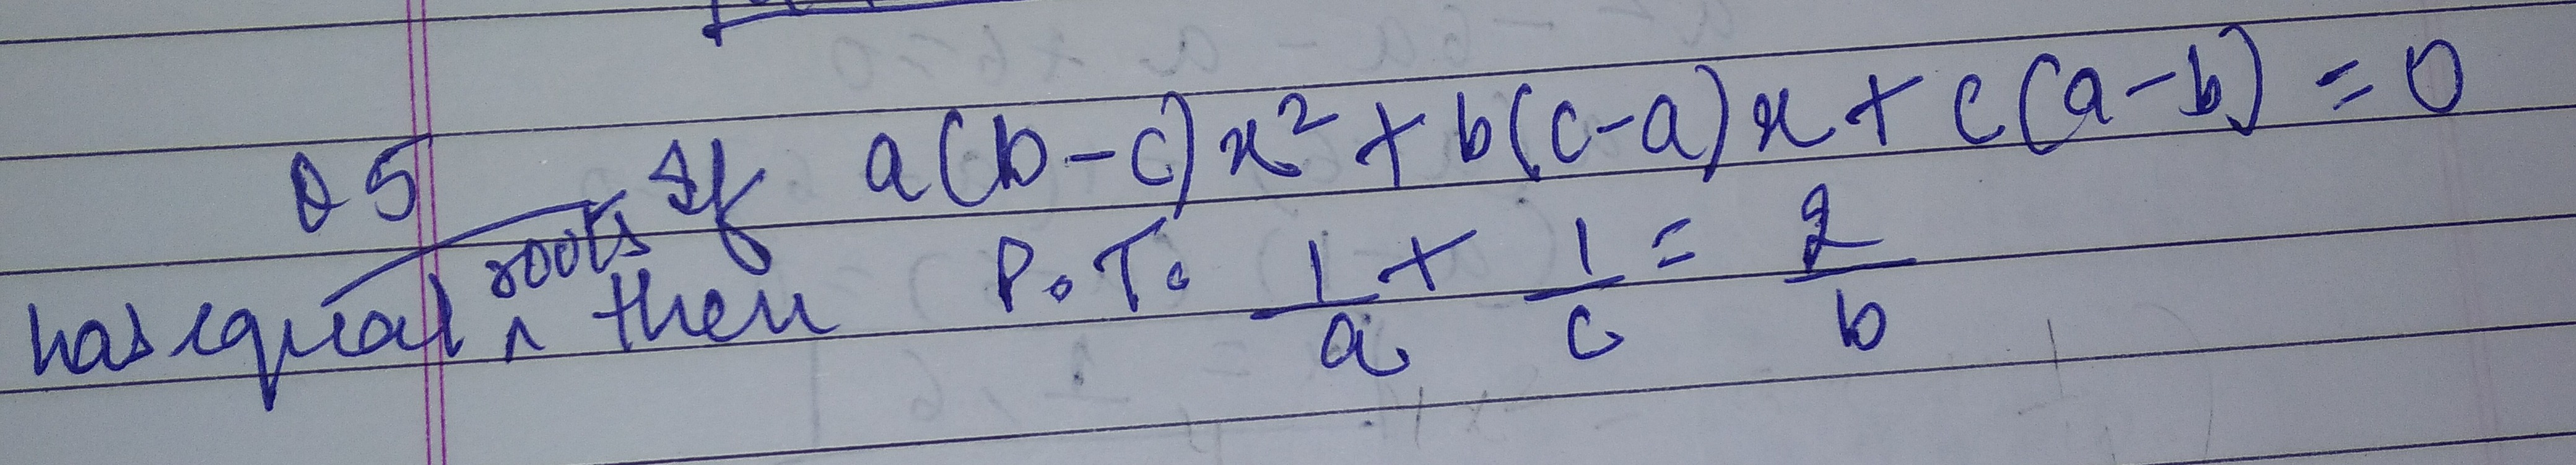 Q5 If a(b-c)x² + b(c-a)x + c(a-b) = 0
has equal roots then P.T. 1/a + 1/c = 2/b